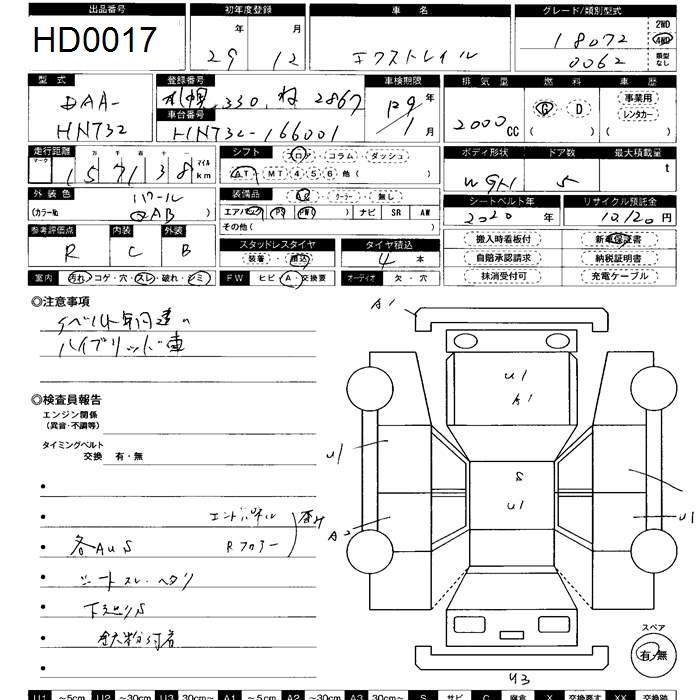 出品番号 初年度登録 車名 グレード/類別型式
HD0017 29年 12月 エクストレイル 18072 0062 2WD 4WD 類型なし
型式 登録番号 車検期限 排気量 燃料 車歴
DAA-HNT32 札幌 330 ね 2867 R9年 1月 2000CC G・D 事業用 レンタカー
車台番号
HNT32-166001
走行距離 シフト フロア コラム ダッシュ ボディ形状 ドア数 最大積載量
マーク 十 万 千 百 十 一 マイル km
157138 AT MT 4 5 6 他( ) WGN 5 t
外装色 パール 装備品 革 クーラー 無し シートベルト年 リサイクル預託金
(カラー№ QAB ) エアバック PS PW ナビ SR AW 2020年 10120円
その他( )
参考評価点 内装 外装 スタッドレスタイヤ タイヤ積込 搬入時看板付 新車保証書
R C B 装着・積込 4本 自賠承認請求 納税証明書
室内 汚れ・コゲ・穴・スレ・破れ・シミ FW ヒビ・A・交換要 オーディオ 欠・穴 抹消受付可 充電ケーブル
◎注意事項
ベルト年月違い
ハイブリッド車
◎検査員報告
エンジン関係
(異音・不調等)
タイミングベルト
交換 有・無
エンドパネル
各AUS Rフロアー
シートスレ・ヘタリ
下廻りS
鉄粉付着
A1
U1
A1
S
U1
U1
A2
U1
U3
スペア
有・無
U1 ~5cm U2 ~30cm U3 30cm~ A1 ~5cm A2 ~30cm A3 30cm~ S サビ C 腐食 X 交換要す XX 交換跡